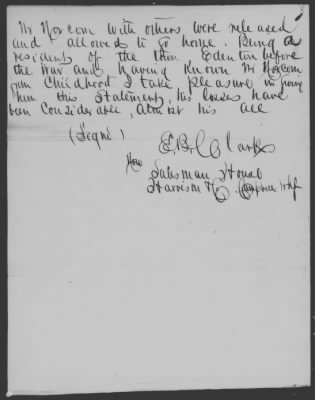 Mr Norcom with others were released
and allowed to go home. Being a
resident of the town Edenton before
the war and having known Mr Norcom
from Childhood I take pleasure in giving
him this Statement, his losses have
been considerable, almost his all
(Segni)
E. B. Clarks
Now
Salesman House
Harrison